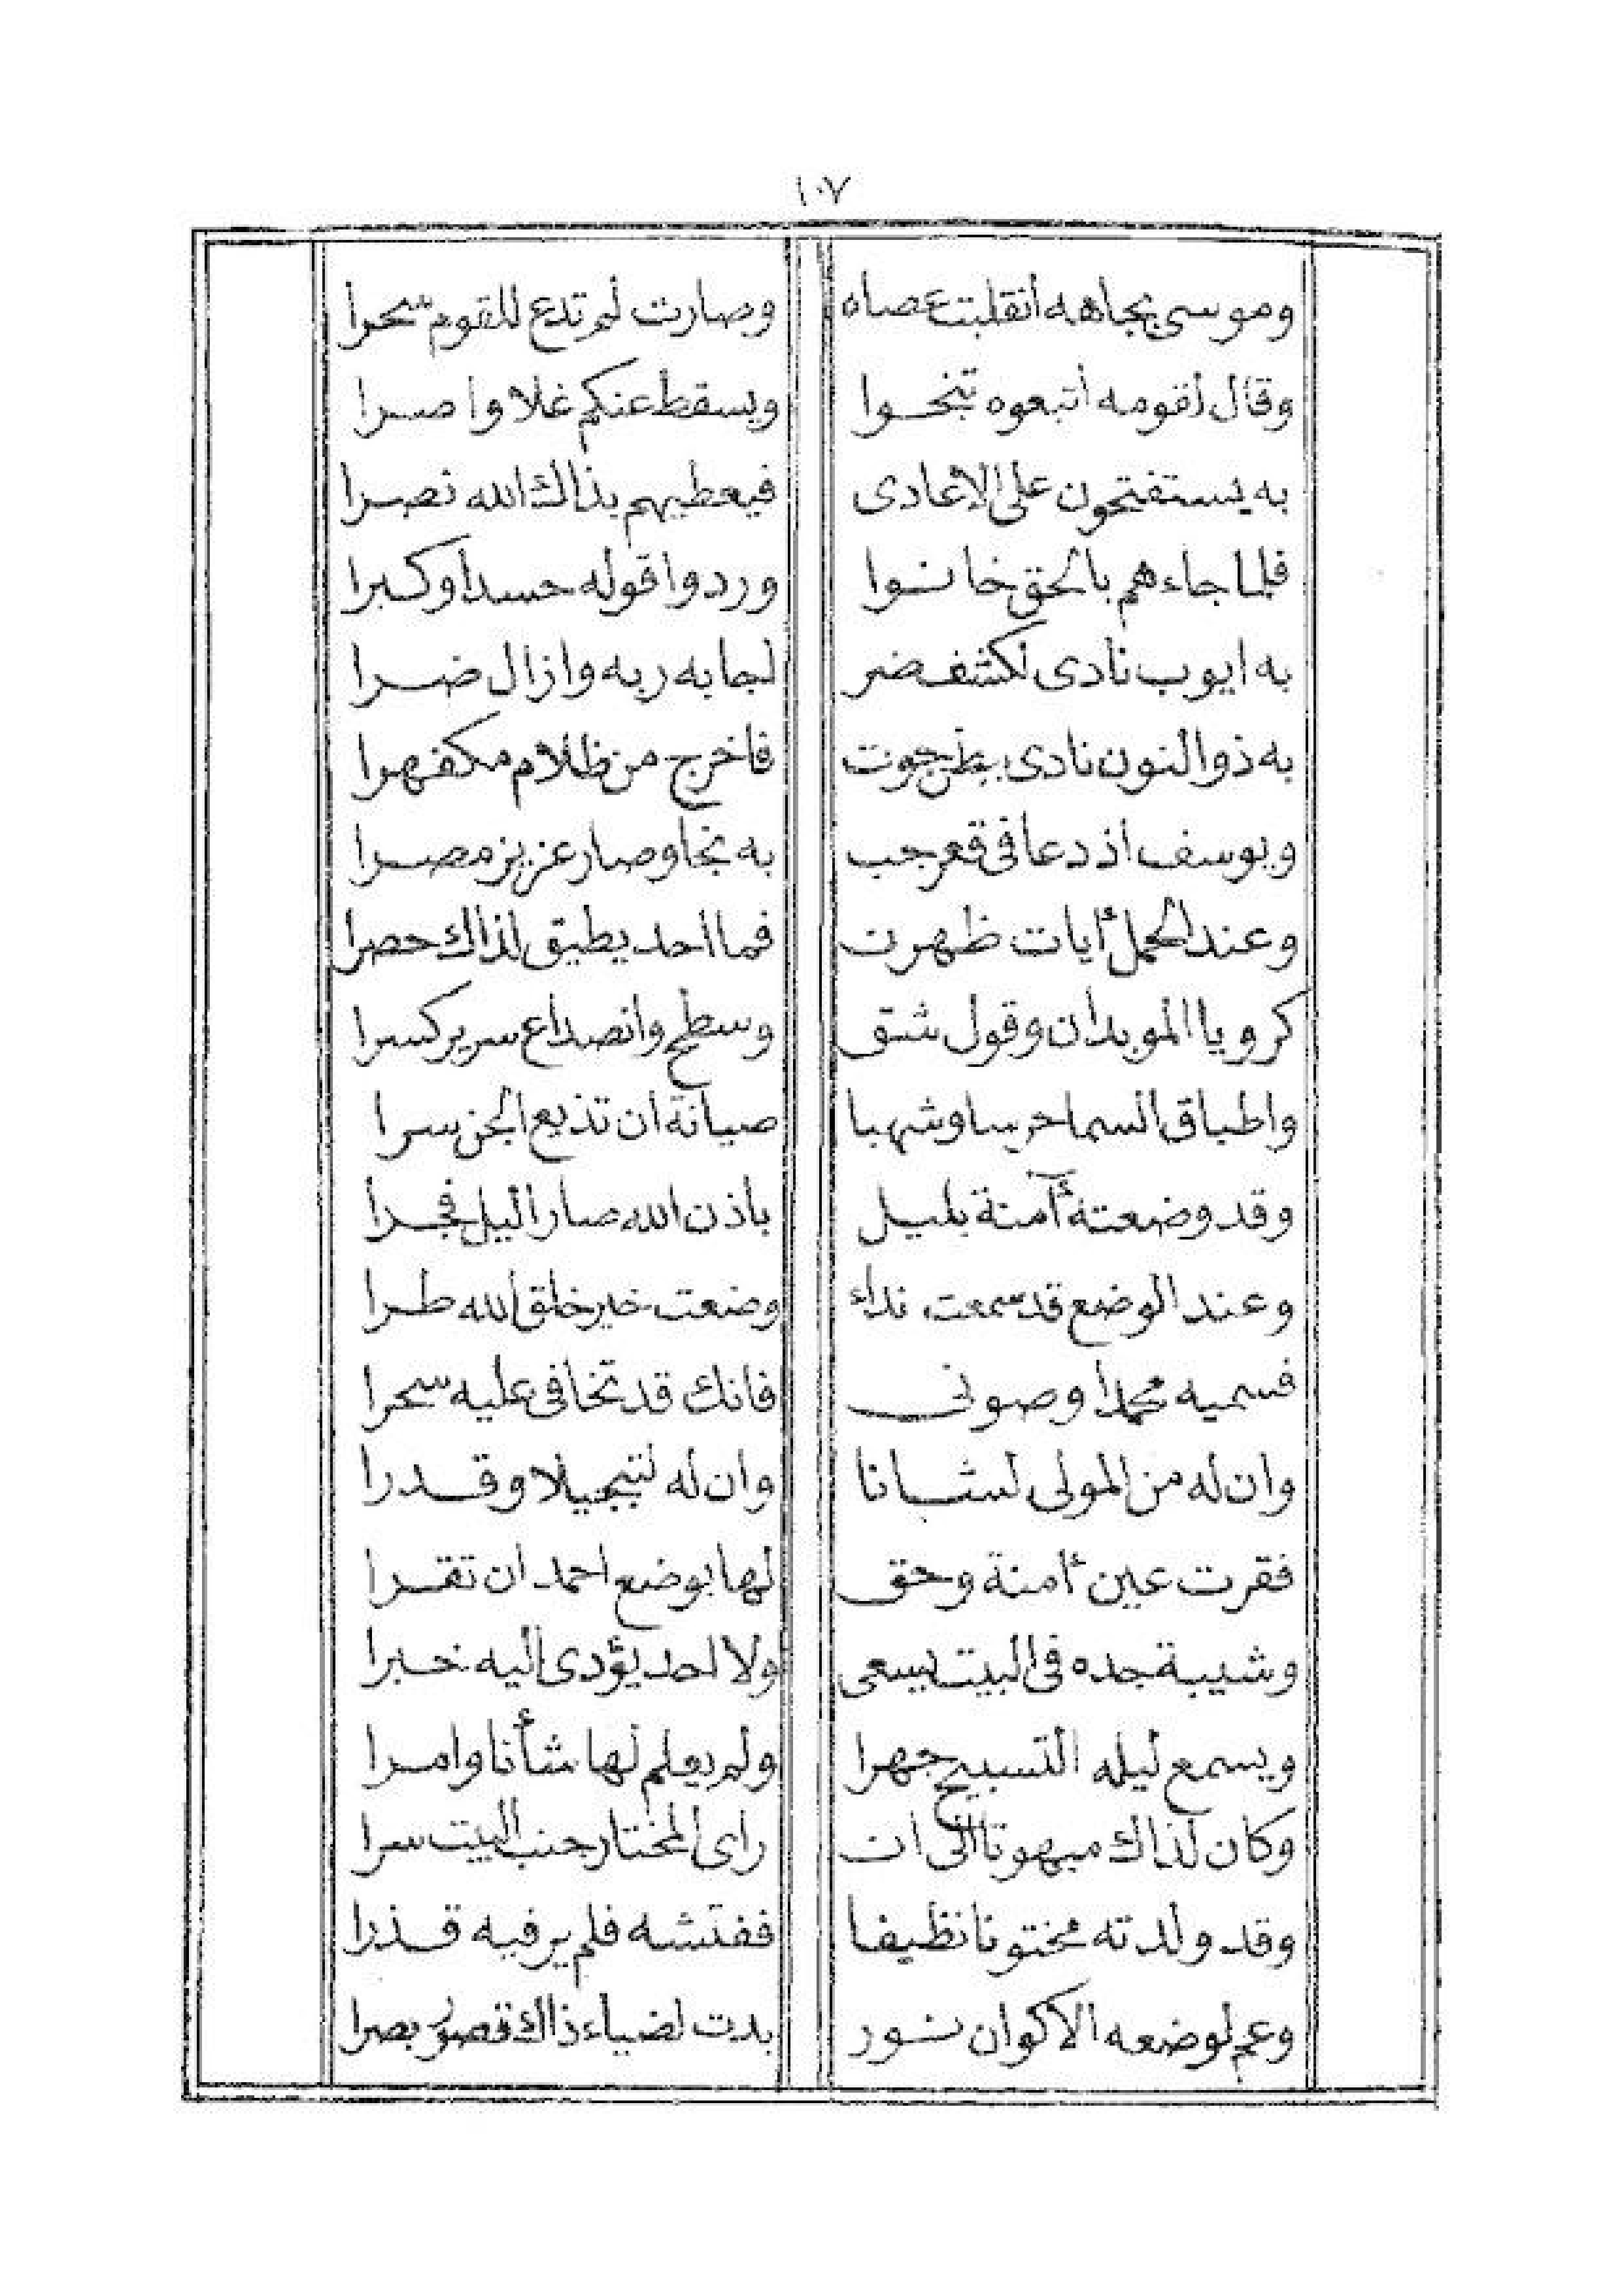 ١٠٧
وموسى بجاهه أنقلبت عصاه وصارت لم تدع للقوم سحرا
وقال لقومه أتبعوه تنجوا ويسقط عنكم غلا واصرا
به يستفتحون على الاعادى فيعطيهم بذاك الله نصرا
فلما جاءهم بالحق خانوا وردوا قوله حسدا وكبرا
به ايوب نادى لكشف ضر لجا به ربه وازال ضرا
به ذو النون نادى ببطن حوت فاخرج من ظلام مكفهرا
ويوسف اذ دعا فى قعر جب به نجا وصار عزيز مصرا
وعند الحمل أيات ظهرت فما احد يطيق لذاك حصرا
كرويا الموبدان وقول شق وسطح وانصداع سرير كسرا
واطباق السما حرسا وشهبا صيانة ان تذيع الجن سرا
وقد وضعته آمنة بليل بأذن الله صار اليل فجرا
وعند الوضع قد سمعت نداء وضعت خير خلق الله طرا
فسميه محمدا وصونى فانك قد تخافى عليه سحرا
وان له من المولى لشانا وان له لتبجيلا وقدرا
فقرت عين أمنة وحق لها بوضع احمد ان تقرا
وشيبة جده فى البيت يسعى ولا احد يؤدى اليه خبرا
ويسمع ليله التسبيح جهرا ولم يعلم لها شأنا وامرا
وكان لذاك مبهوتا الى ان راى المختار جنب البيت سرا
وقد ولدته مختونا نظيفا ففتشه فلم ير فيه قذرا
وعم لوضعه الاكوان نور بدت لضياء ذاك قصور بصرا